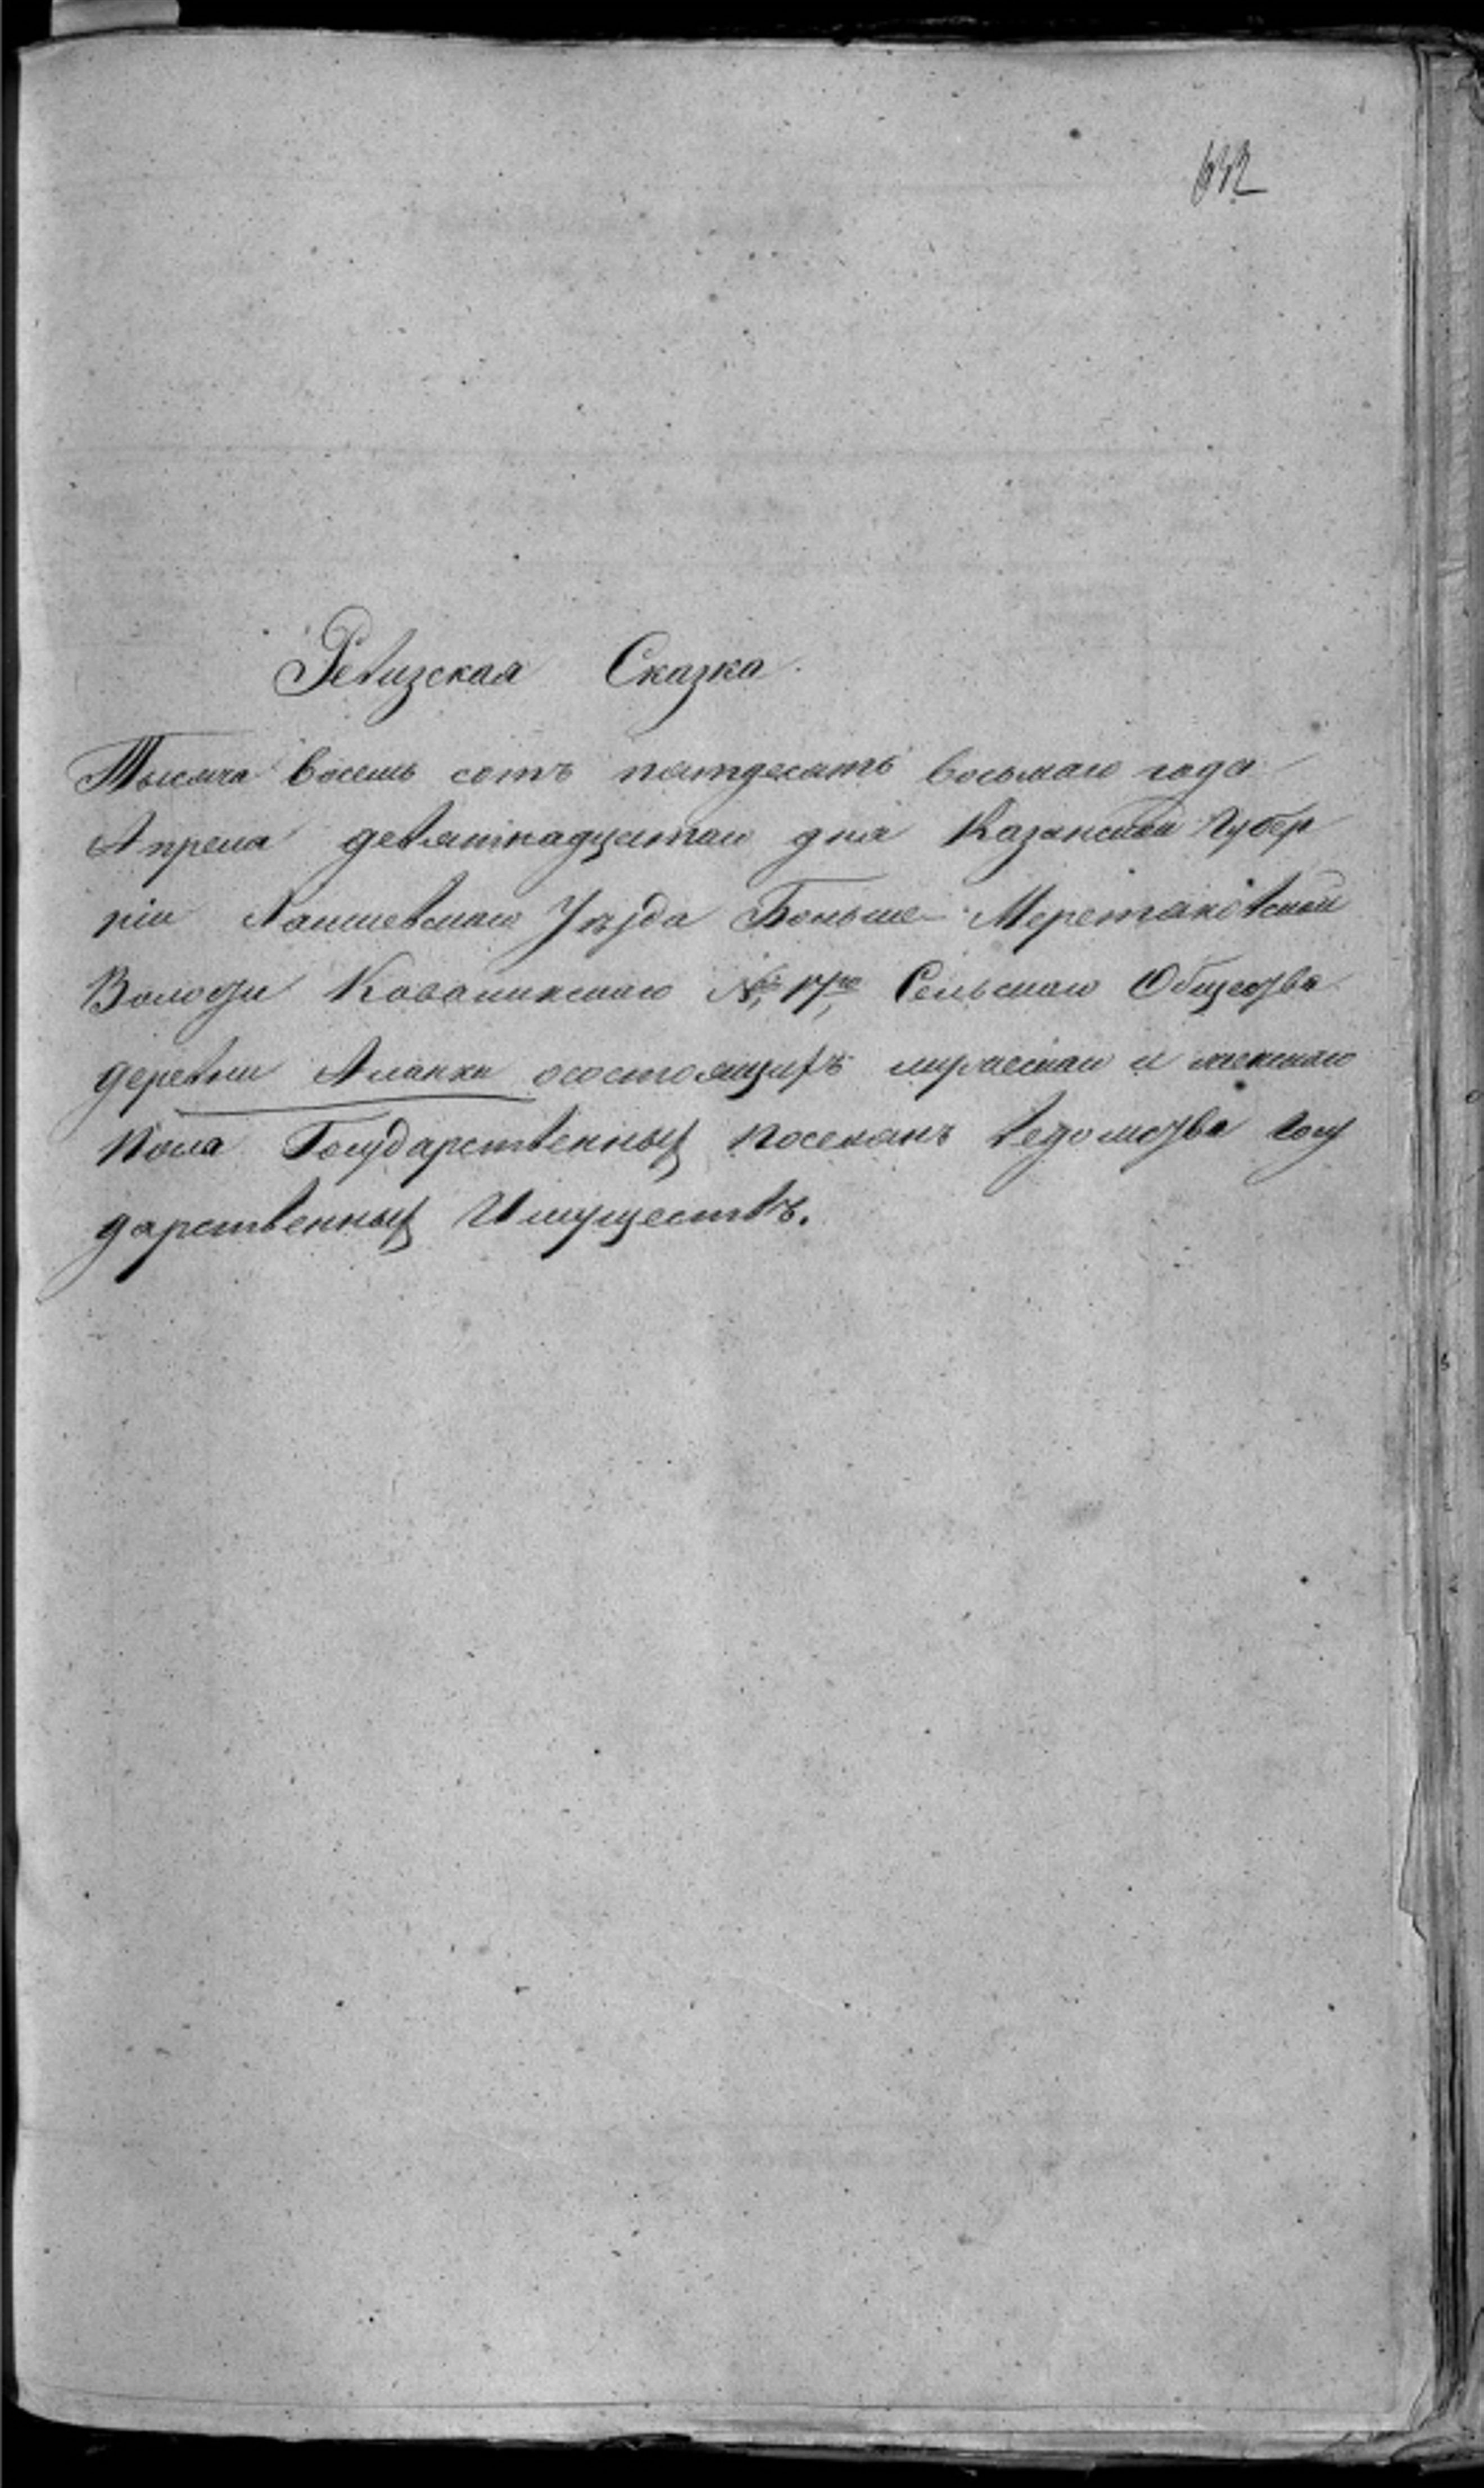 632
Ревизская Сказка.
Тысяча восемь сотъ пятдесятъ восьмаго года
Апреля девятнадцатаго дня Казанской Губер
ніи Лаишевскаго Уѣзда Больше-Меретяковской
Волости Ковалинскаго № 17го Сельскаго Общества
деревни Аланки осостоящихъ мужескаго и женскаго
пола Государственныхъ поселянъ ведомства Госу
дарственныхъ Имуществъ.